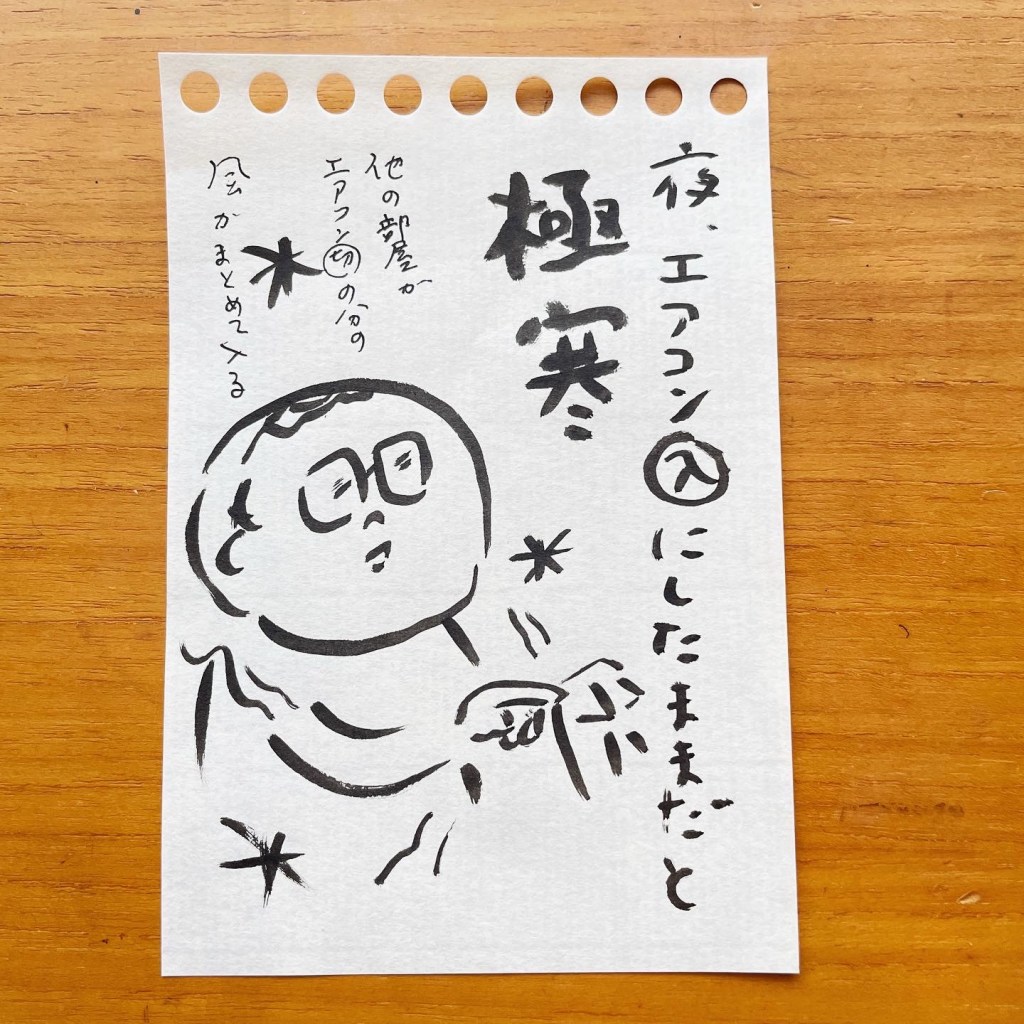 夜、エアコン入にしたままだと
極寒
他の部屋が
エアコン切の分の
風がまとめてくる